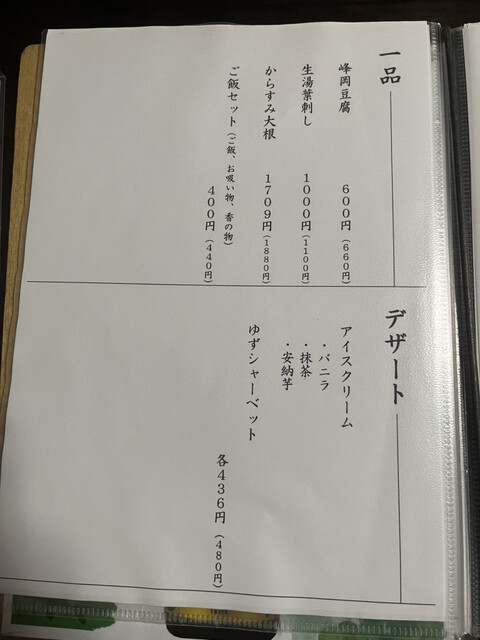 一品
峰岡豆腐 600円(660円)
生湯葉刺し 1000円(1100円)
からすみ大根 1709円(1880円)
ご飯セット(ご飯、お吸い物、香の物)
400円(440円)
デザート
アイスクリーム
・バニラ
・抹茶
・安納芋
ゆずシャーベット
各436円(480円)